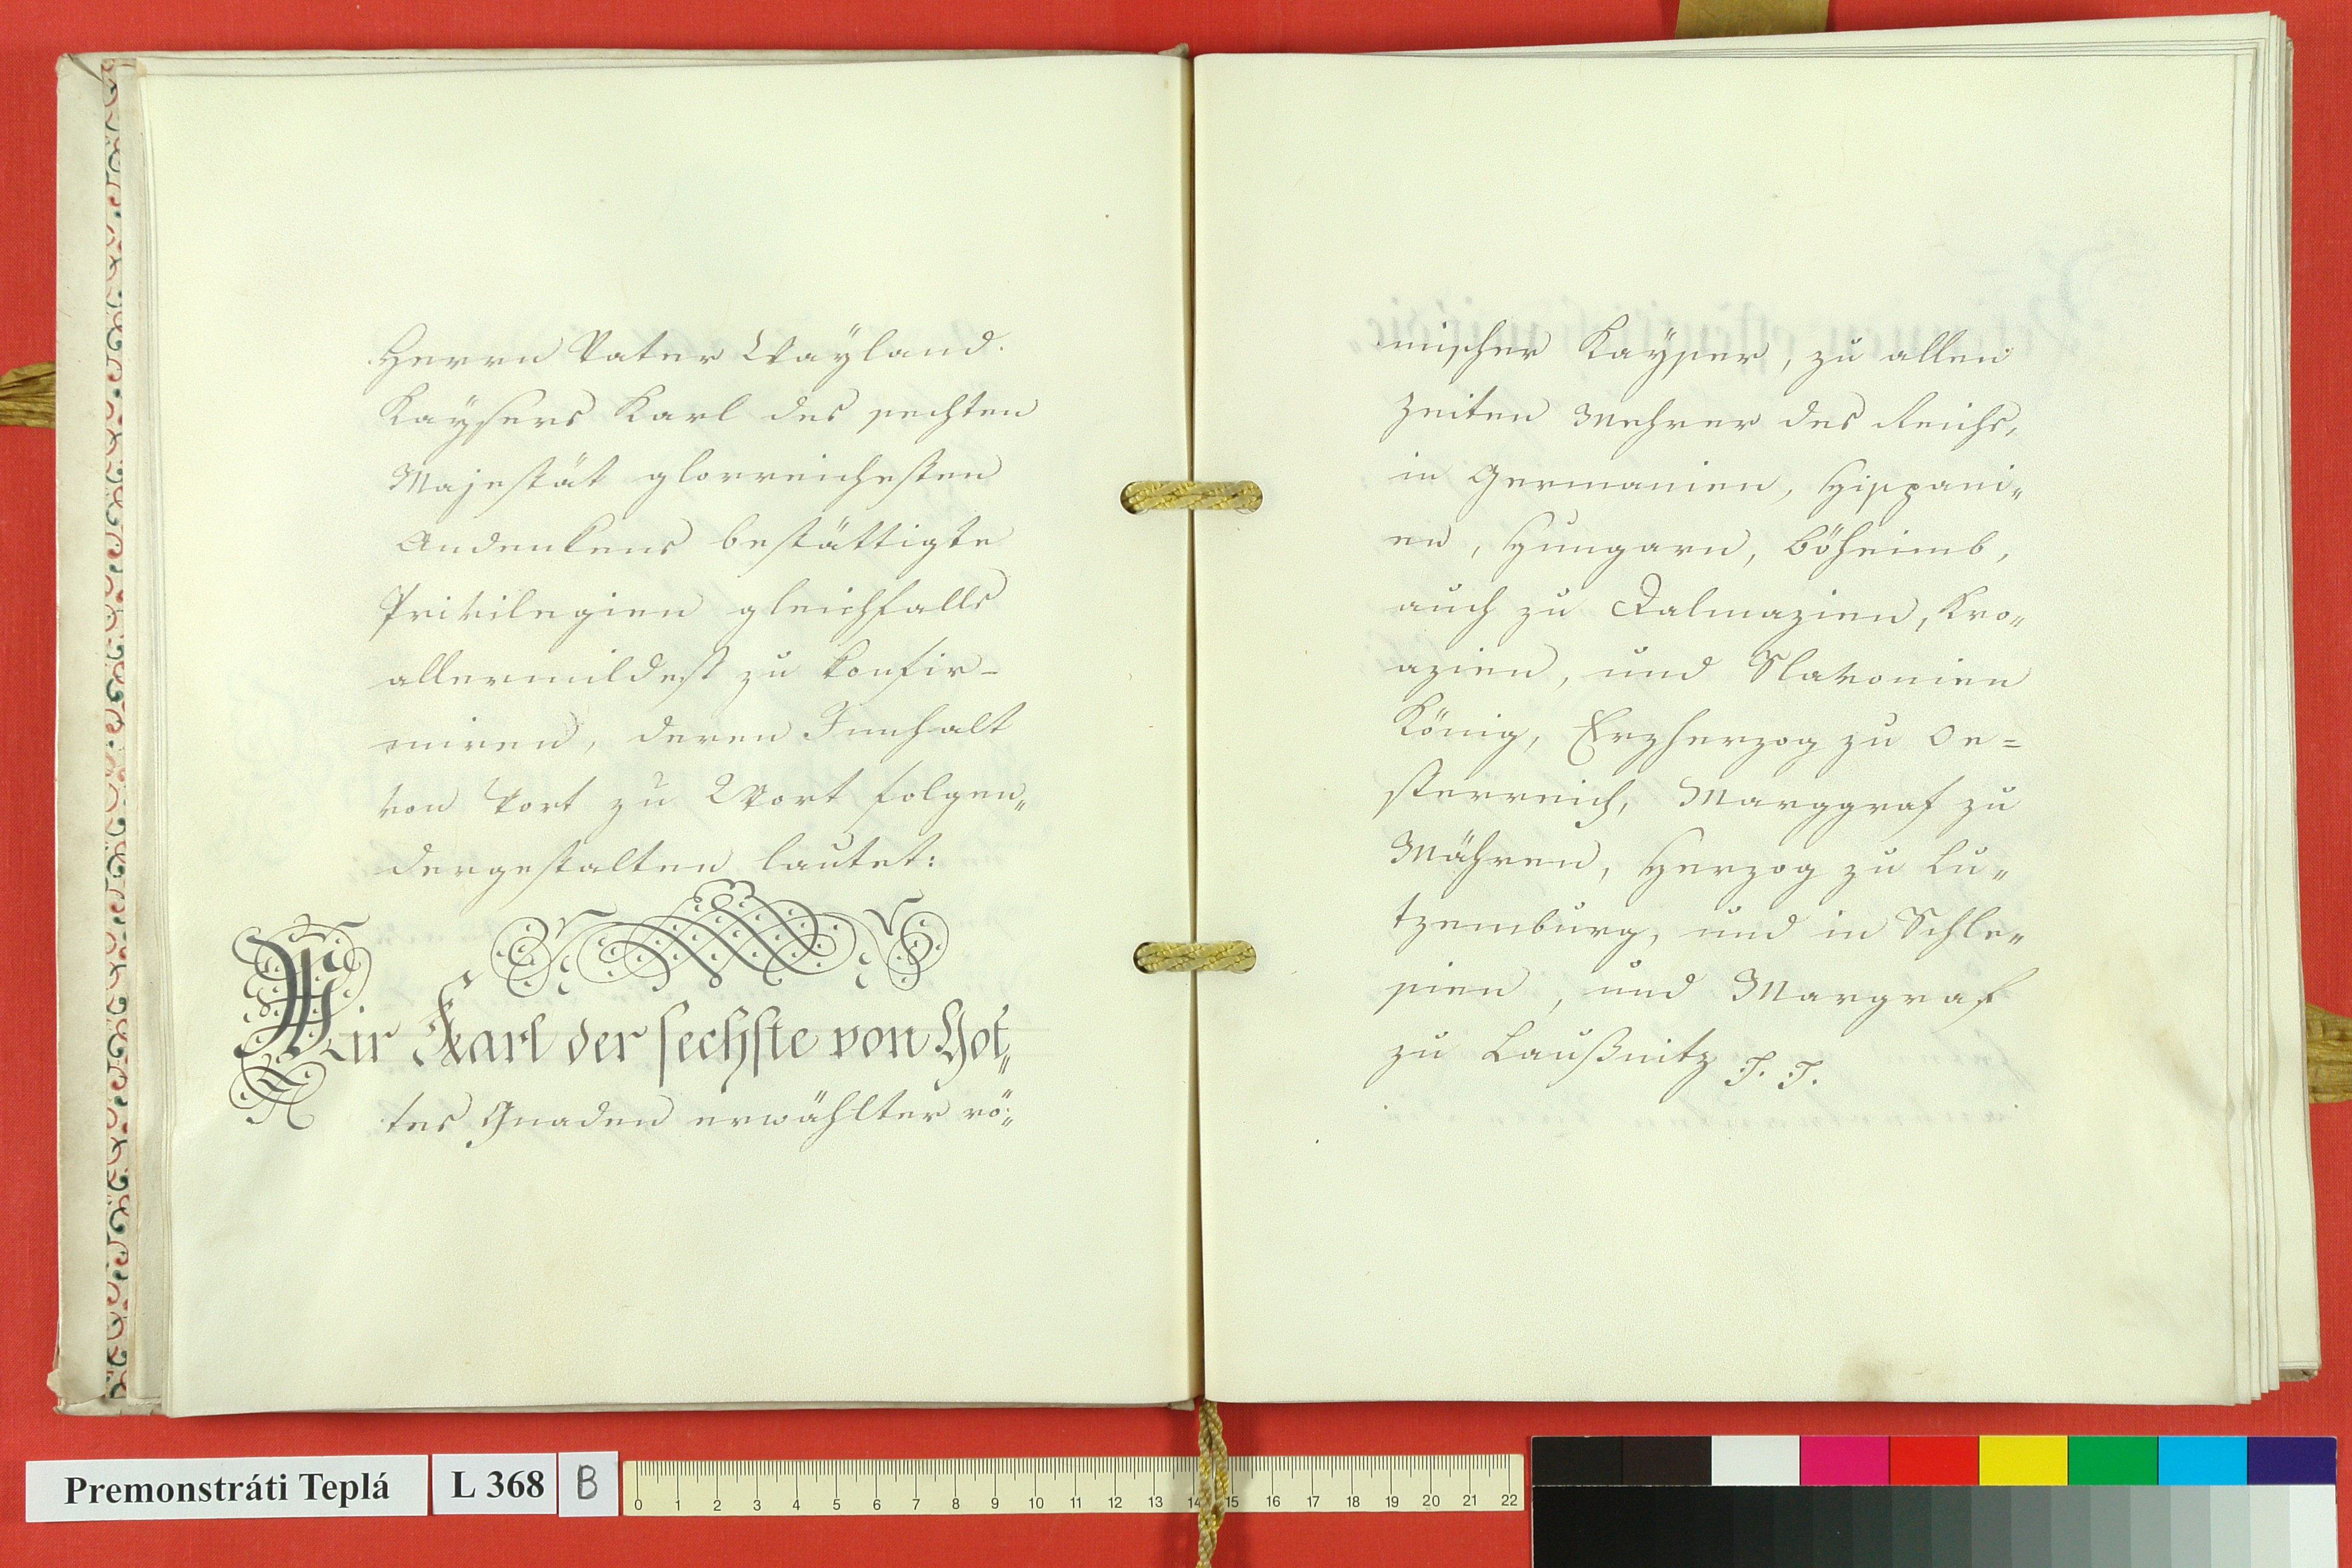 Herrn Vater Wayland
Kaÿsers Karl des sechten
Majestät glorreichesten
Andenkens bestättigte
Privilegien gleichfalls
allermildest zu konfir-
miren, deren Innhalt
von Wort zu Wort folgen„
dergestalten lautet:
Wir Karl der sechste von Got„
tes Gnaden erwählter rö„
mischer Kaÿser, zu allen
Zeiten Mehrer des Reichs,
in Germanien, Hispani„
en, Hungarn, Böheimb,
auch zu Dalmazien, Kro„
azien, und Slavonien
König, Erzherzog zu Oe=
sterreich, Marggraf zu
Mähren, Herzog zu Lu„
tzemburg, und in Schle„
sien, und Margraf
zu Laußnitz T. T.
Premonstráti Teplá L 368 B
0 1 2 3 4 5 6 7 8 9 10 11 12 13 14 15 16 17 18 19 20 21 22